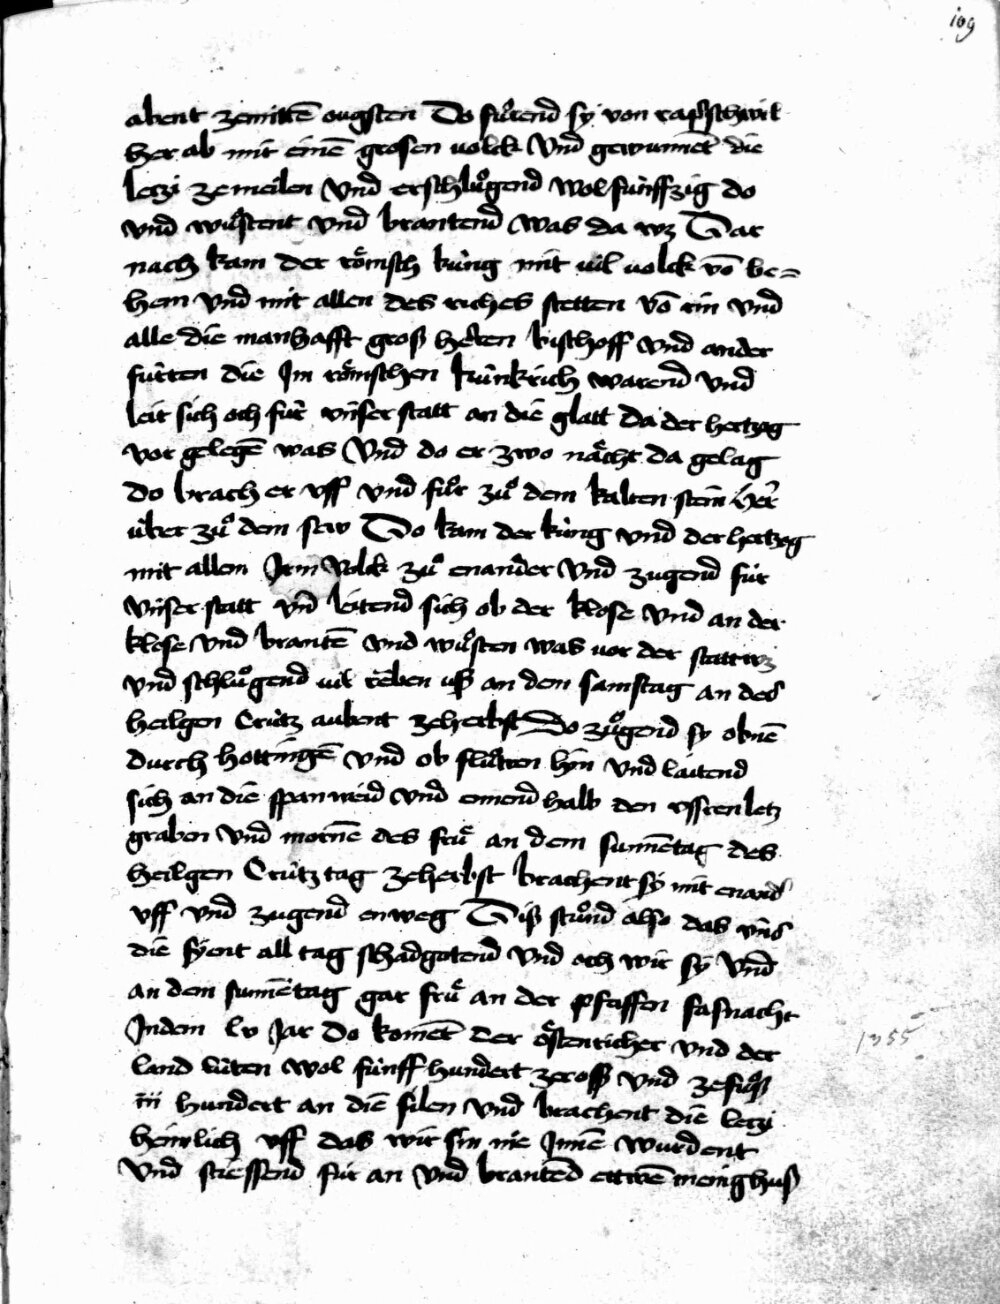 109
abent zemittē ougsten Do fůrend sy von rapschwil
her ab mit einē grosen volck Vnd gewunnet die
letzi ze meilen Vnd erschlůgend wol fünffzig do
vnd wůstent vnd brantend was da wz Dar
nach kam der römsch küng mit vil volck vō be=
hem vnd mit allen des riches stetten vō rin vnd
alle die manhafft gros herren bischoff vnd ander
fürten die Im römschen künkrich warend vnd
leit sich och für vnser statt an die glatt da der hertzog
vor gelegē was Vnd do er zwo nächt da gelag
do brach er vff vnd fůr zů dem kalten stein her
über zů dem sew Do kam der küng vnd der hertzog
mit allem Irm volck zů enander Vnd zugend für
vnser statt vn̄ leitend sich ob der klose vnd an der
klose vnd brantē vnd wůsten was vor der statt wz
vnd schlůgend vil reben vß an dem samstag an des
heilgen Crütz aubent ze herbst Do zugend sy obnē
durch hottingē vnd ob flůntren hin vnd laitend
sich an die spanweid vnd enend halb den vssren letz
graben vnd mornē des frů an dem sunnētag des
heilgen Crütz tag ze herbst brachent sy mit enand
vff vnd zugend enweg Dis stůnd also das vns
die fyent all tag schadgotend vnd och wir sy Vnd
an dem sunnētag gar frů an der pfaffen fasnacht
Indem lv Jar do komet der östericher vnd der
1355
land lüten wol fünff hundert ze ross vnd ze fůß
iii hundert an die silen vnd brachent die letzi
heimlich vff das wir sin nie Innē wurdent
Vnd stiessend für an vnd brantēd ettwē menig hus